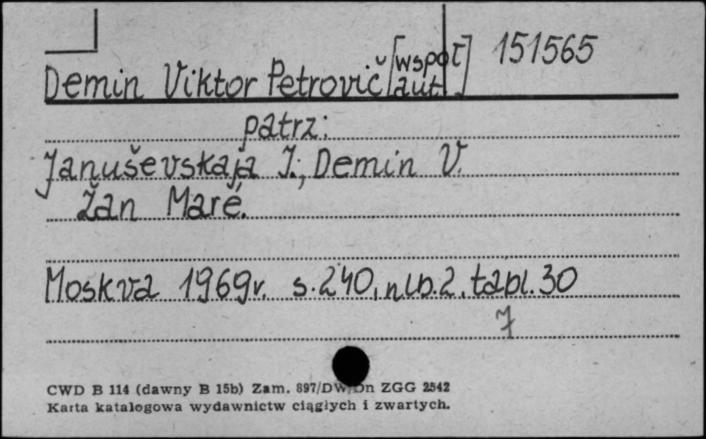 Demin Viktor Petrovič [wspoł aut.] 151565
patrz:
Januševskaja I., Demin V.
Žan Maré.
Moskva 1969r. s.240, nlb.2, tabl.30
7
CWD B 114 (dawny B 15b) Zam. 897/DW/Dn ZGG 2542
Karta katalogowa wydawnictw ciągłych i zwartych.